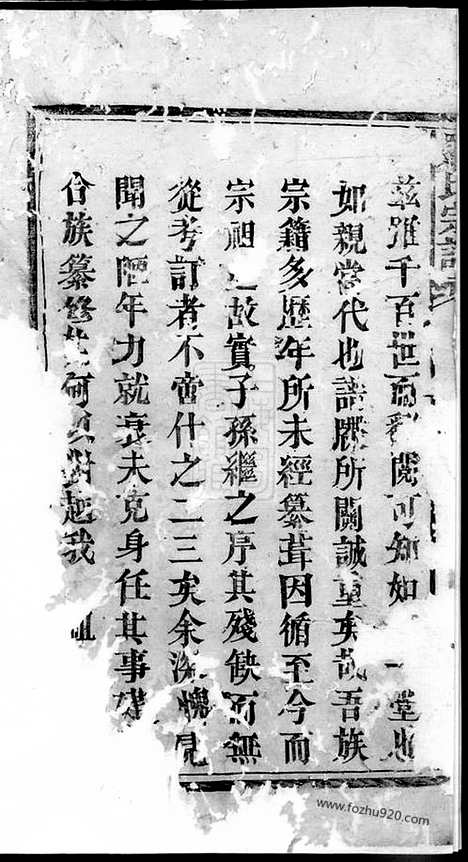 茲雖千百世而𮗚閱可知如一堂
如親當代也譜牒所關誠重矣哉吾族
宗籍多歷年所未經纂葺因循至今而
宗祖之故實子孫繼之序其殘缺而無
從考訂者不啻什之二三矣余深愧見
聞之陋年力就衰未克身任其事
合族纂修其何以對起我祖
氏宗譜
www.fozhu920.com